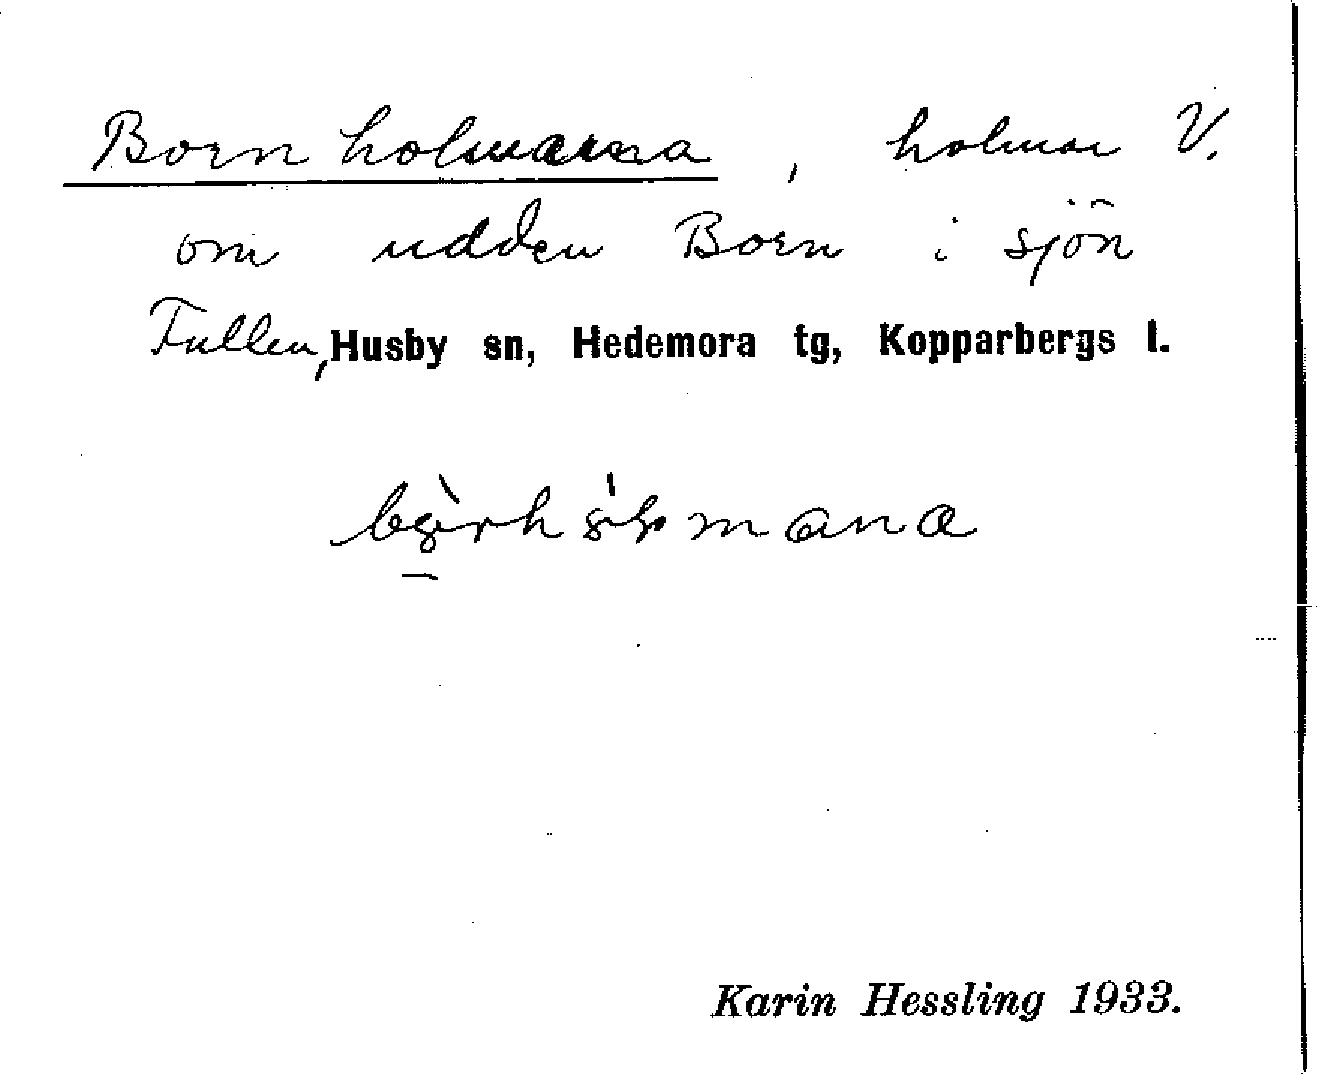 Bornholmarna, holmar V.
om udden Born i sjön
Fullen, Husby sn, Hedemora tg, Kopparbergs l.
Karin Hessling 1933.